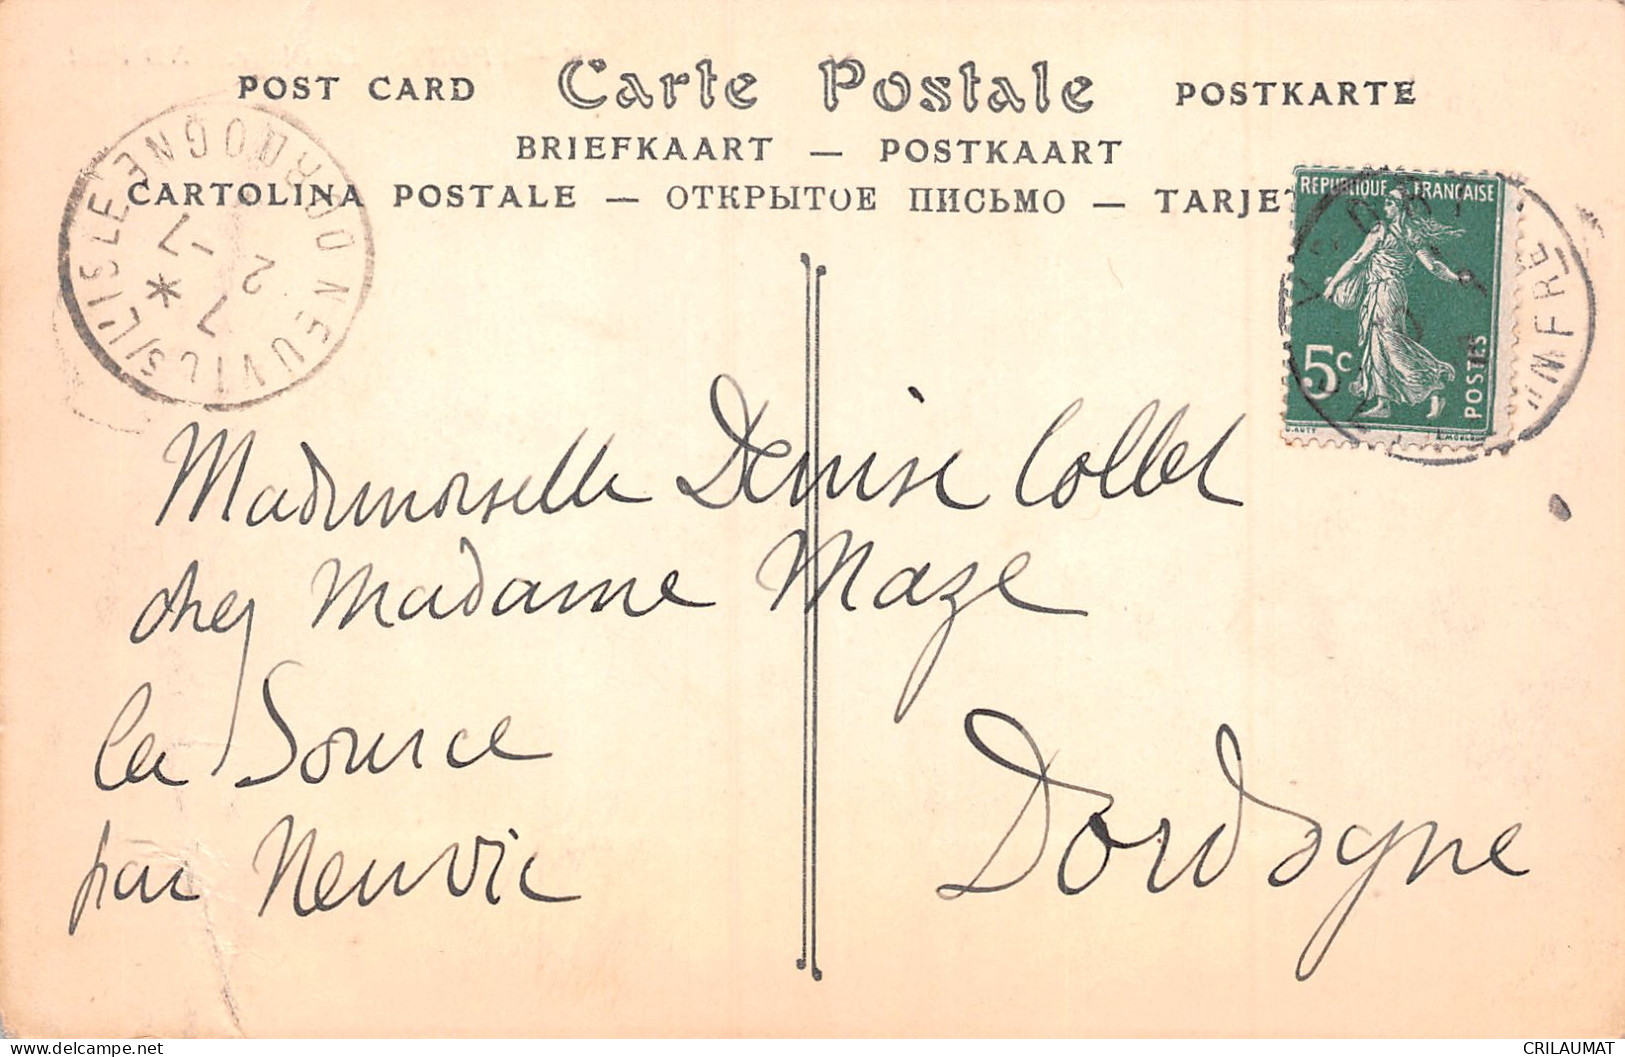 POST CARD Carte Postale POSTKARTE
BRIEFKAART — POSTKAART
CARTOLINA POSTALE — ОТКРЫТОЕ ПИСЬМО — TARJET
RÉPUBLIQUE FRANÇAISE
5c
POSTES
7 * 7-2
Mademoiselle Denise Collet
chez Madame Maze
la Source
par Neuvic
Dordogne
CRILAUMAT